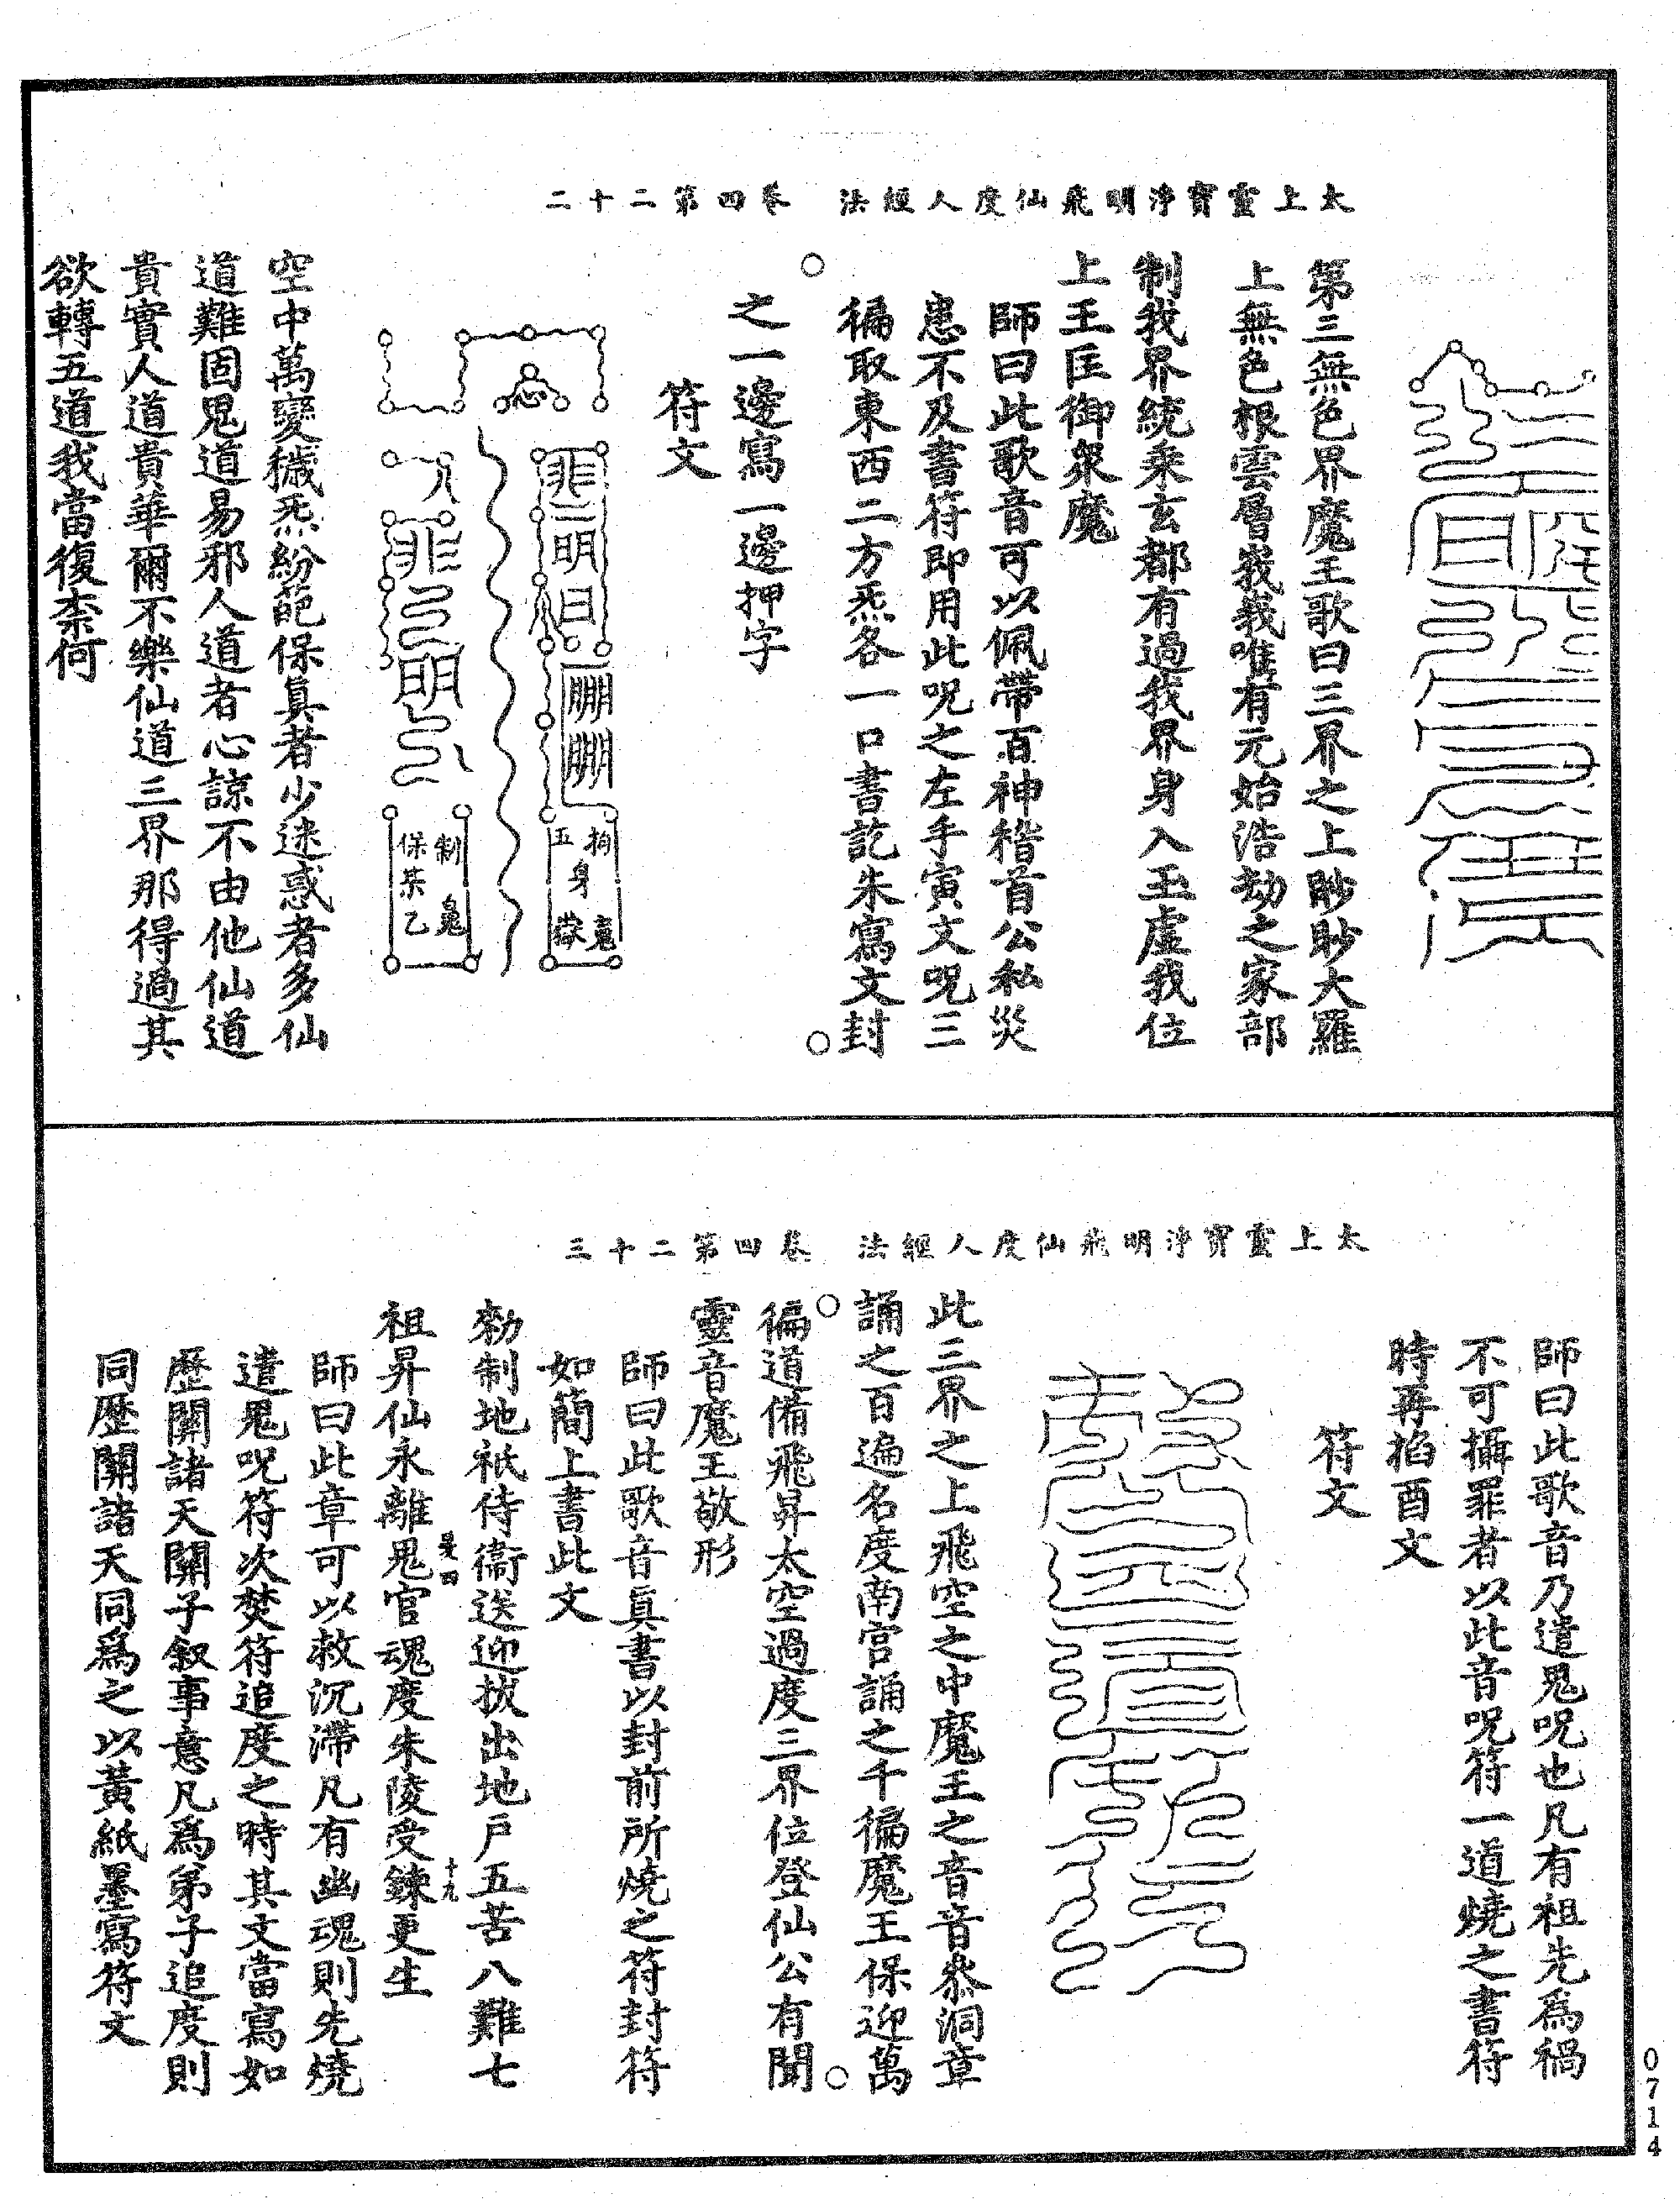 太上靈寶淨明飛仙度人經法　卷四第二十二
第三無色界魔王歌曰三界之上眇眇大羅
上無色根雲層峩峩唯有元始浩劫之家部
制我界統乘玄都有過我界身入玉虛我位
上王匡御衆魔
師曰此歌音可以佩帶百神稽首公私災
患不及書符即用此呪之左手寅文呪三
徧取東西二方炁各一口書訖朱寫文封
之一邊寫一邊押字
符文
心
五 身
保某乙
制
空中萬變穢炁紛葩保真者少迷惑者多仙
道難固鬼道易邪人道者心諒不由他仙道
貴實人道貴華爾不樂仙道三界那得過其
欲轉五道我當復柰何
太上靈寶淨明飛仙度人經法　卷四第二十三
師曰此歌音乃遣鬼呪也凡有祖先爲禍
不可攝罪者以此音呪符一道燒之書符
時再掐酉文
符文
此三界之上飛空之中魔王之音音叅洞章
誦之百遍名度南宮誦之千徧魔王保迎萬
徧道備飛昇太空過度三界位登仙公有聞
靈音魔王敬形
師曰此歌音真書以封前所燒之符封符
如簡上書此文
勑制地祇侍衞送迎拔出地戶五苦八難七
祖昇仙永離鬼官魂度朱陵受鍊更生
是四
十九
師曰此章可以救沉滯凡有幽魂則先燒
遣鬼呪符次焚符追度之時其文當寫如
歷關諸天關子叙事意凡爲弟子追度則
同歷關諸天同爲之以黃紙墨寫符文
0714